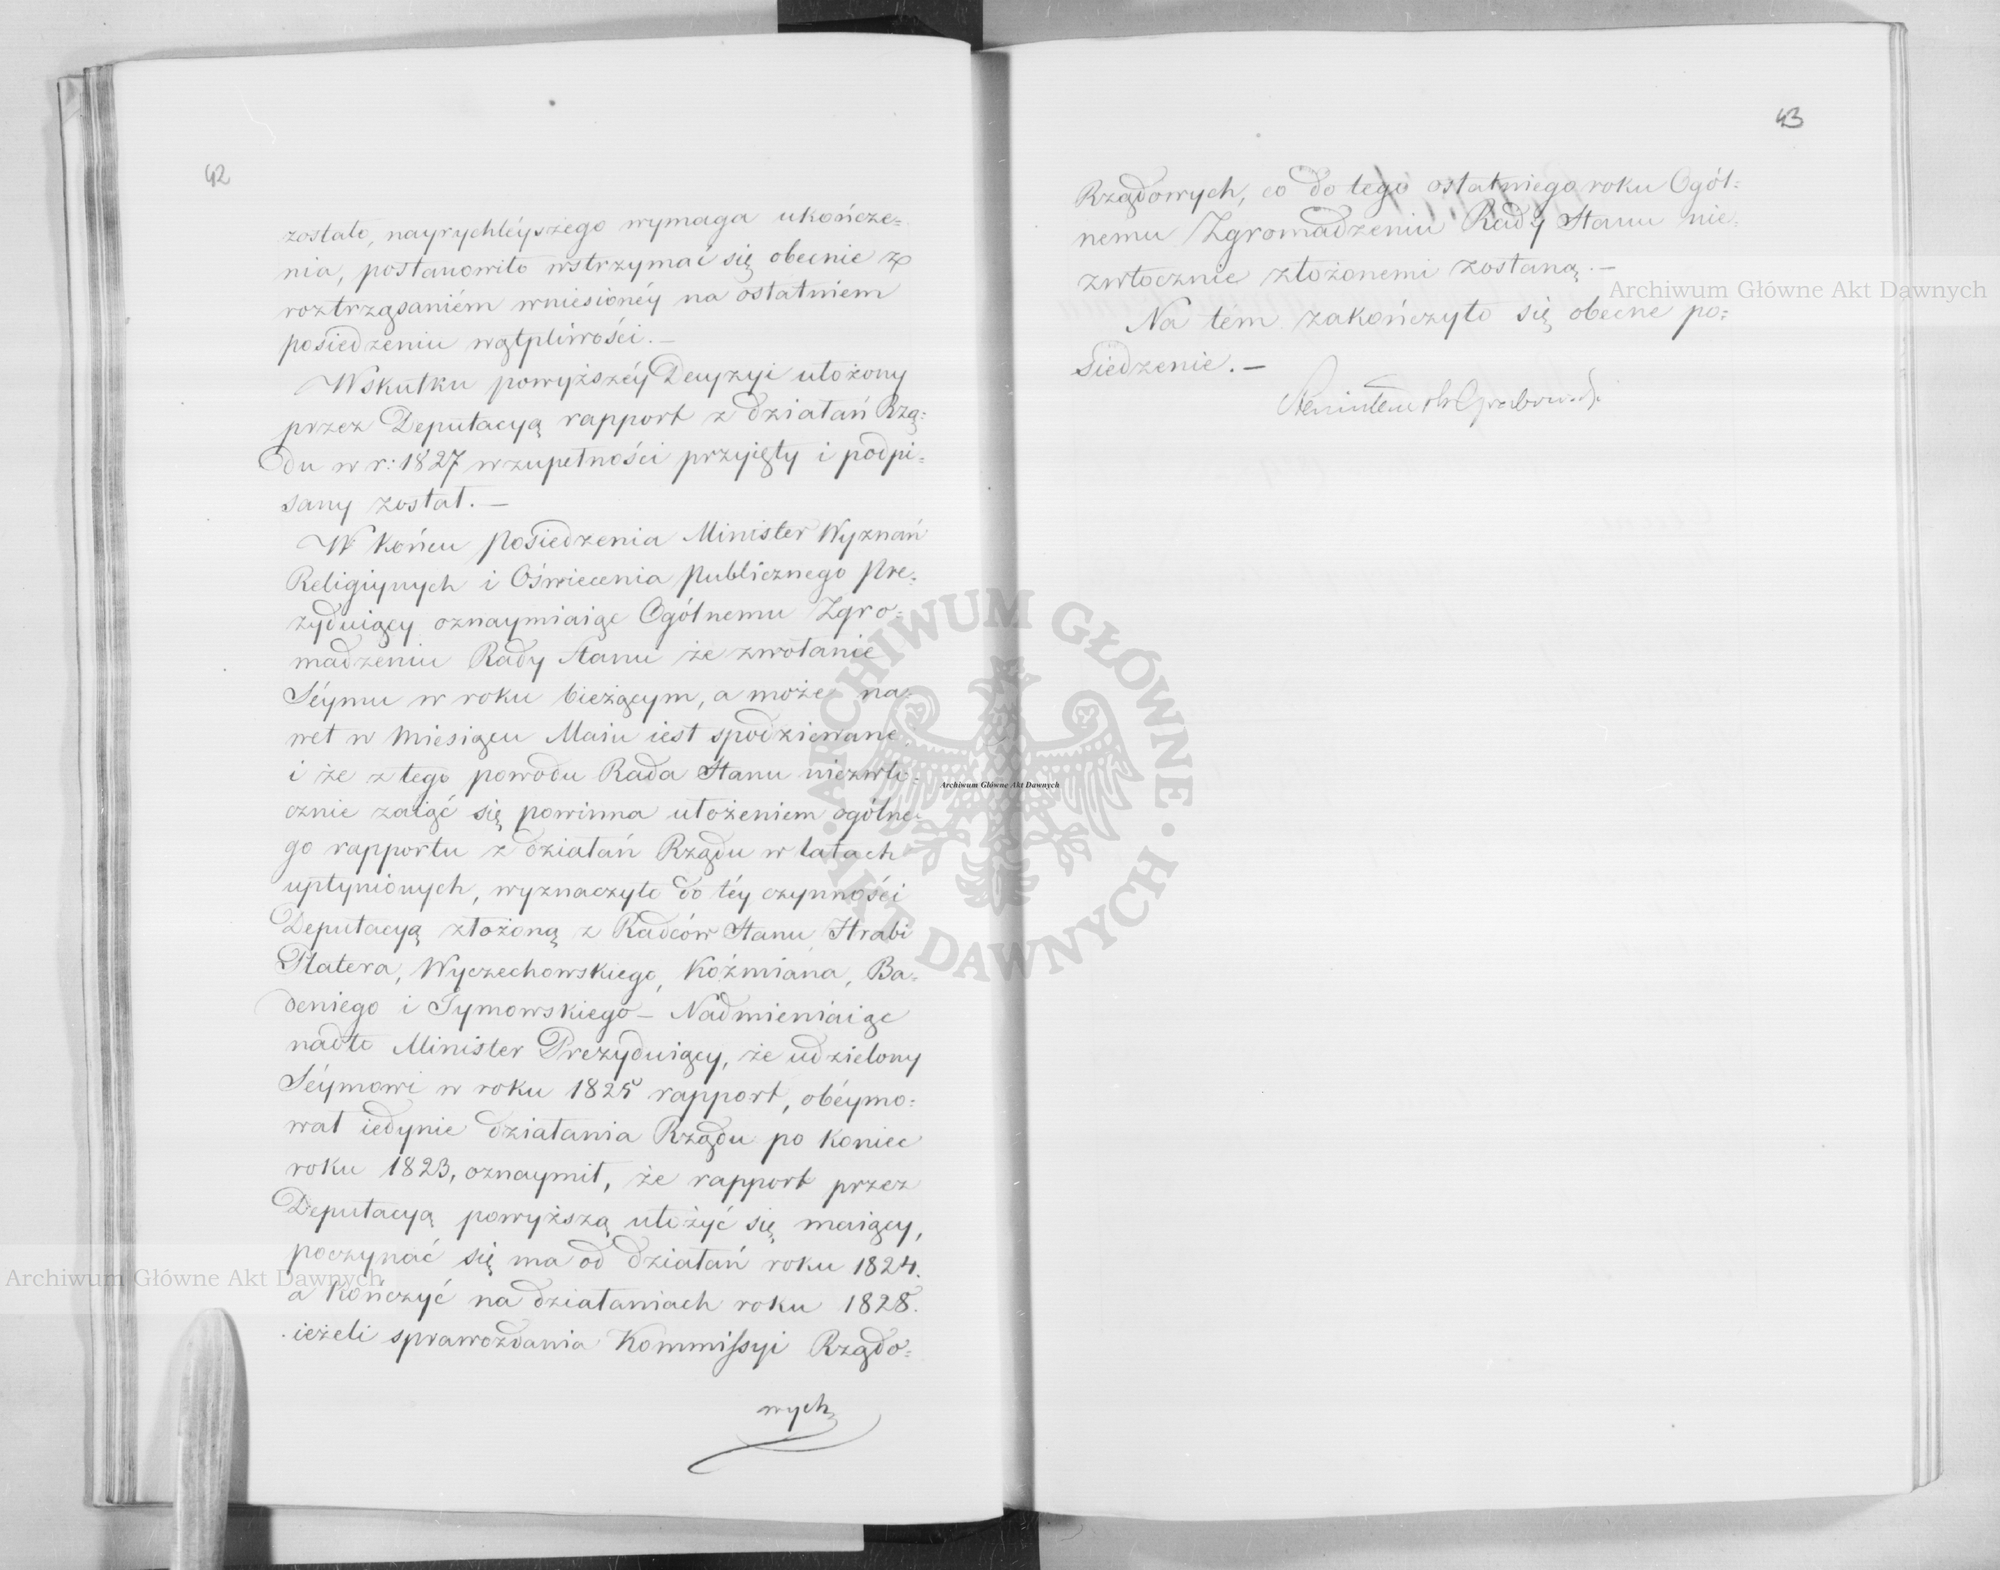 42
zostało, nayrychléyszego wymaga ukończe=
nia, postanowiło wstrzymać się obecnie z
roztrząsaniém wniesionéy na ostatniem
posiedzeniu wątpliwości. —
Wskutku powyższéy Decyzyi ułożony
przez Deputacyą rapport z działań Rzą=
du w r: 1827 w zupełności przyięty i podpi=
sany został. —
W końcu posiedzenia Minister Wyznań
Religiynych i Oświecenia publicznego Pre=
zyduiący oznaymiaiąc Ogólnemu Zgro=
madzeniu Rady Stanu że zwołanie
Séymu w roku bieżącym, a może na=
wet w Miesiącu Maiu iest spodziewane,
i że z tego powodu Rada Stanu niezwło=
cznie zaiąć się powinna ułożeniem ogólne=
go rapportu z działań Rządu w latach
upłynionych, wyznaczyło do téy czynności
Deputacyą złożoną z Radców Stanu Hrabi
Platera, Wyczechowskiego, Koźmiana, Ba=
deniego i Tymowskiego — Nadmieniaiąc
nadto Minister Prezyduiący, że udzielony
Séymowi w roku 1825 rapport, obéymo=
wał iedynie działania Rządu po koniec
roku 1823, oznaymił, że rapport przez
Deputacyą powyższą ułożyć się maiący,
poczynać się ma od działań roku 1824.
a kończyć na działaniach roku 1828.
ieżeli sprawozdania Kommissyi Rządo=
wych
43
Rządowych, co do tego ostatniego roku Ogól=
nemu Zgromadzeniu Rady Stanu nie=
zwłocznie złożonemi zostaną. —
Na tém zakończyło się obecne po=
siedzenie. —
Grabowski
Archiwum Główne Akt Dawnych
Archiwum Główne Akt Dawnych
Archiwum Główne Akt Dawnych
ARCHIWUM GŁÓWNE • AKT DAWNYCH •